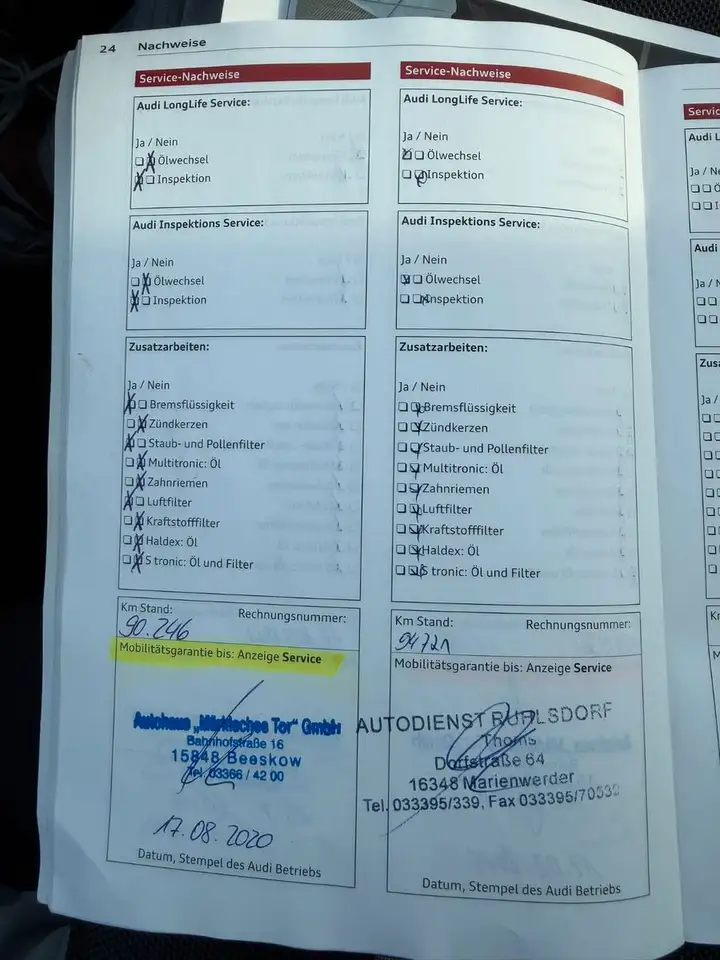 24 Nachweise
Service-Nachweise
Audi LongLife Service:
Ja / Nein
Ölwechsel
Inspektion
Audi Inspektions Service:
Ja / Nein
Ölwechsel
Inspektion
Zusatzarbeiten:
Ja / Nein
Bremsflüssigkeit
Zündkerzen
Staub- und Pollenfilter
Multitronic: Öl
Zahnriemen
Luftfilter
Kraftstofffilter
Haldex: Öl
S tronic: Öl und Filter
Km Stand: Rechnungsnummer:
90.246
Mobilitätsgarantie bis: Anzeige Service
Autohaus „Märkisches Tor" GmbH
Bahnhofstraße 16
15848 Beeskow
Tel. 03366 / 42 00
17.08.2020
Datum, Stempel des Audi Betriebs
Service-Nachweise
Audi LongLife Service:
Ja / Nein
Ölwechsel
Inspektion
Audi Inspektions Service:
Ja / Nein
Ölwechsel
Inspektion
Zusatzarbeiten:
Ja / Nein
Bremsflüssigkeit
Zündkerzen
Staub- und Pollenfilter
Multitronic: Öl
Zahnriemen
Luftfilter
Kraftstofffilter
Haldex: Öl
S tronic: Öl und Filter
Km Stand: Rechnungsnummer:
94721
Mobilitätsgarantie bis: Anzeige Service
AUTODIENST RUHLSDORF
Thoms
Dorfstraße 64
16348 Marienwerder
Tel. 033395/339, Fax 033395/70539
Datum, Stempel des Audi Betriebs
Audi
Audi